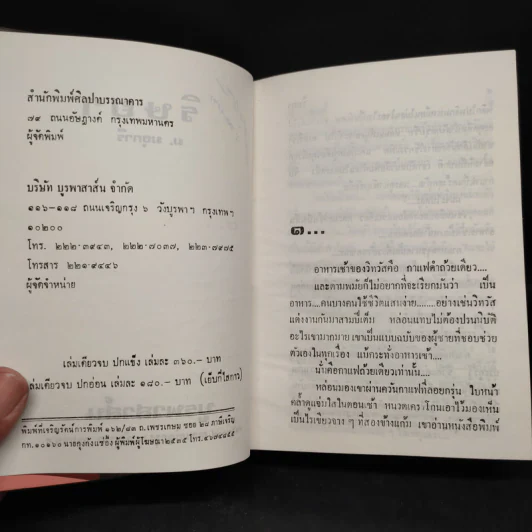 สำนักพิมพ์ศิลปาบรรณาคาร
๗๔ ถนนอัษฎางค์ กรุงเทพมหานคร
ผู้จัดพิมพ์
บริษัท บูรพาสาส์น จำกัด
๑๑๖–๑๑๘ ถนนเจริญกรุง ๖ วังบูรพาฯ กรุงเทพฯ
๑๐๒๐๐
โทร. ๒๒๒-๓๙๔๓, ๒๒๒-๗๐๓๗, ๒๒๓-๗๙๗๕
โทรสาร ๒๒๑-๙๔๔๖
ผู้จัดจำหน่าย
เล่มเดียวจบ ปกแข็ง เล่มละ ๓๖๐.– บาท
เล่มเดียวจบ ปกอ่อน เล่มละ ๑๘๐.– บาท (เย็บกี่ไสกาว)
พิมพ์ที่เจริญรัตน์การพิมพ์ ๑๖๒/๘๓ ถ.เพชรเกษม ซอย ๒๘ ภาษีเจริญ
กท. ๑๐๑๖๐ ผู้พิมพ์ผู้โฆษณา๒๕๓๕
๑...
อาหารเช้าของวิทวัสคือ กาแฟดำถ้วยเดียว....
และตามพมัยก็ไม่อยากที่จะเรียกมันว่า เป็น
อาหาร....คนบางคนใช้ชีวิตแสนง่าย.......อย่างเช่นวิทวัส
แต่งงานกันมาสามปีเต็ม หล่อนแทบไม่ต้องปรนนิบัติ
อะไรเขามากมาย เขาเป็นแบบฉบับของผู้ชายที่ชอบช่วย
ตัวเองในทุกเรื่อง แม้กระทั่งอาหารเช้า....
นี่คือกาแฟถ้วยเดียวเท่านั้น....
หล่อนมองเขาผ่านควันกาแฟที่ลอยกรุ่น ใบหน้า
คล้ำดูแจ่มใสในตอนเช้า หนวดเคราโกนเอาไว้มองเห็น
เป็นไรเขียวจาง ๆ ที่สองข้างแก้ม เขาอ่านหนังสือพิมพ์